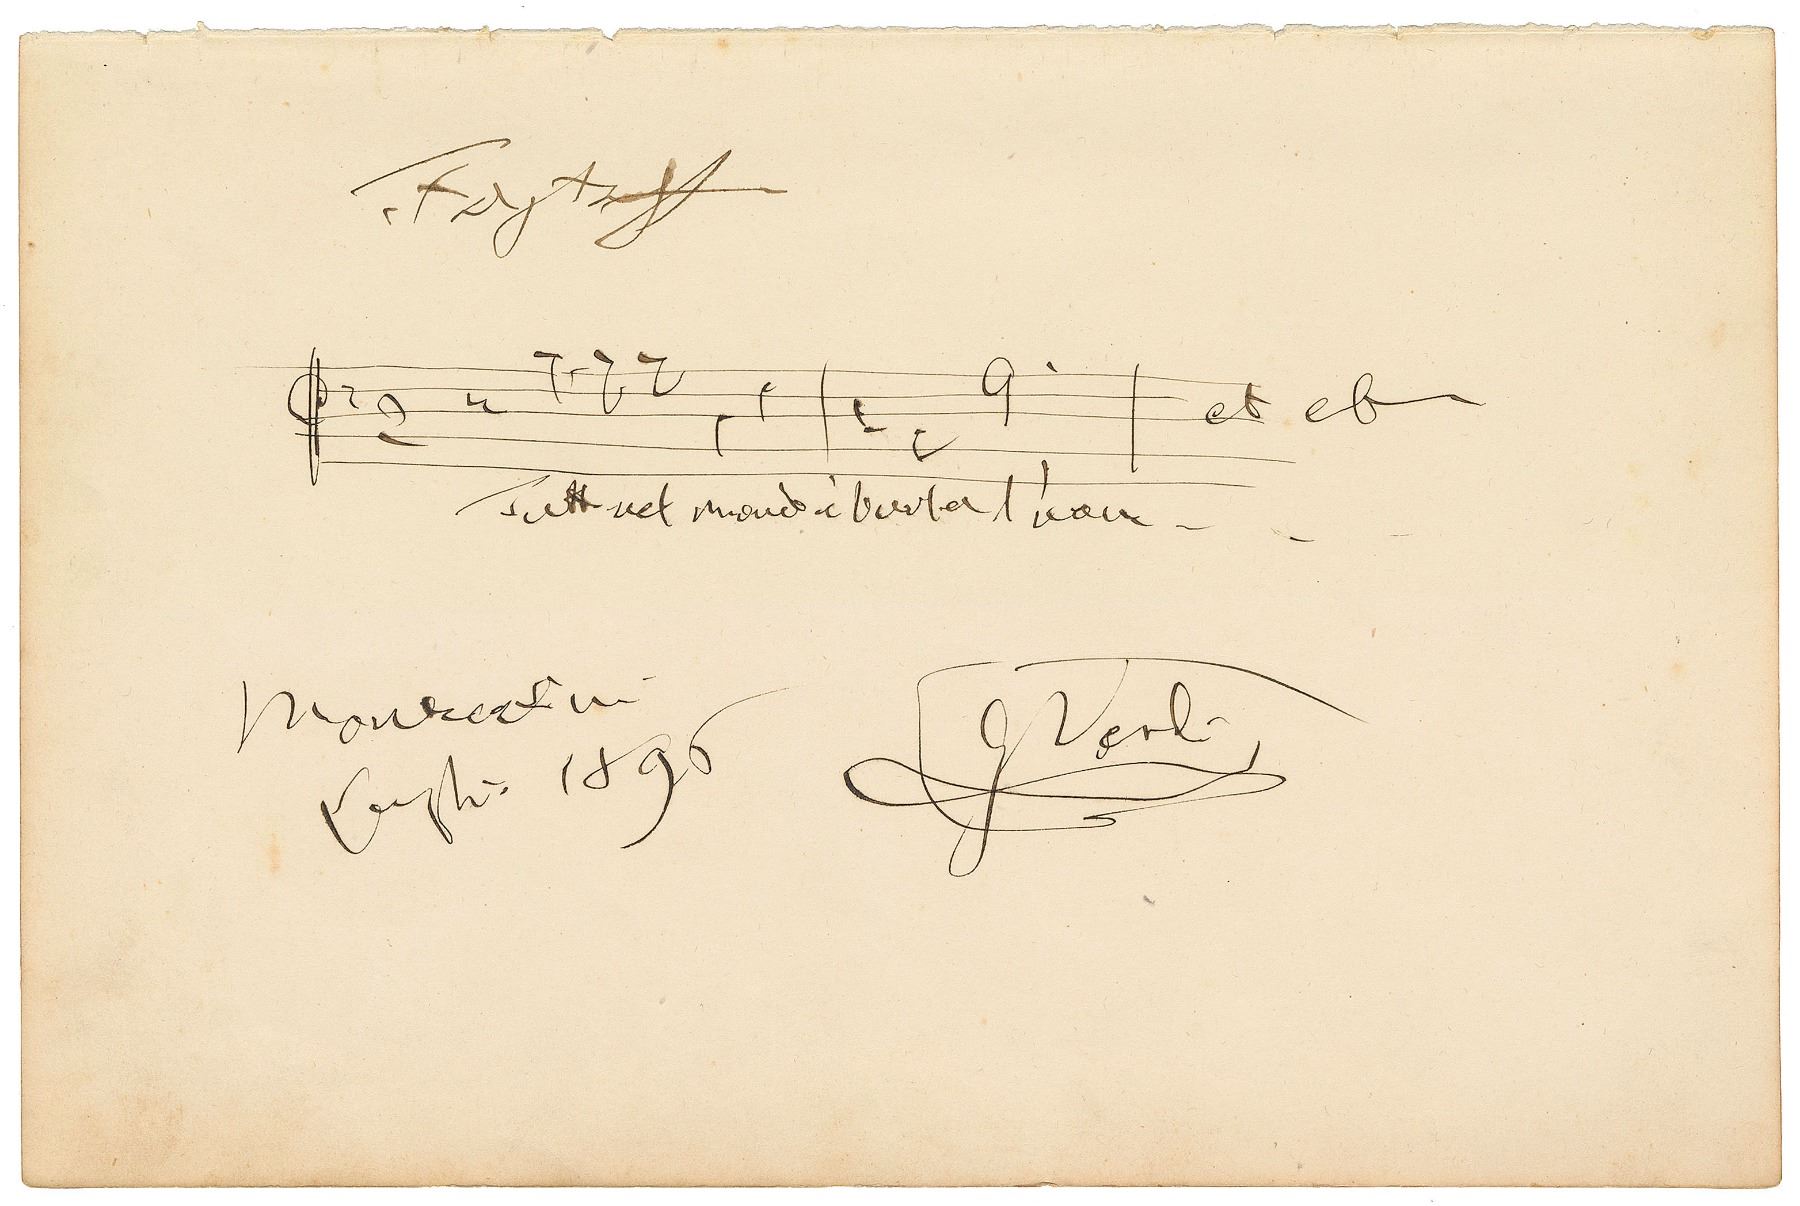 Falstaff
Tutt nel mondo è burla l'uom
etc etc
Montecatini
Luglio 1896
G Verdi